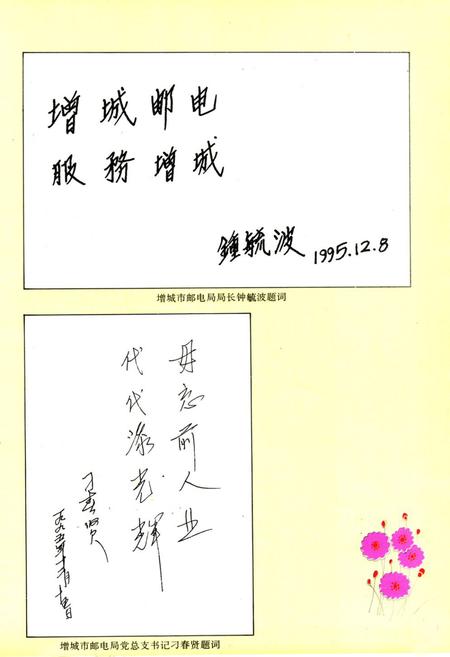 增城邮电
服務增城
鍾毓波 1995.12.8
增城市邮电局局长钟毓波题词
毋忘前人业
代代添光輝
刁春贤
一九九五年十二月十八日
增城市邮电局党总支书记刁春贤题词